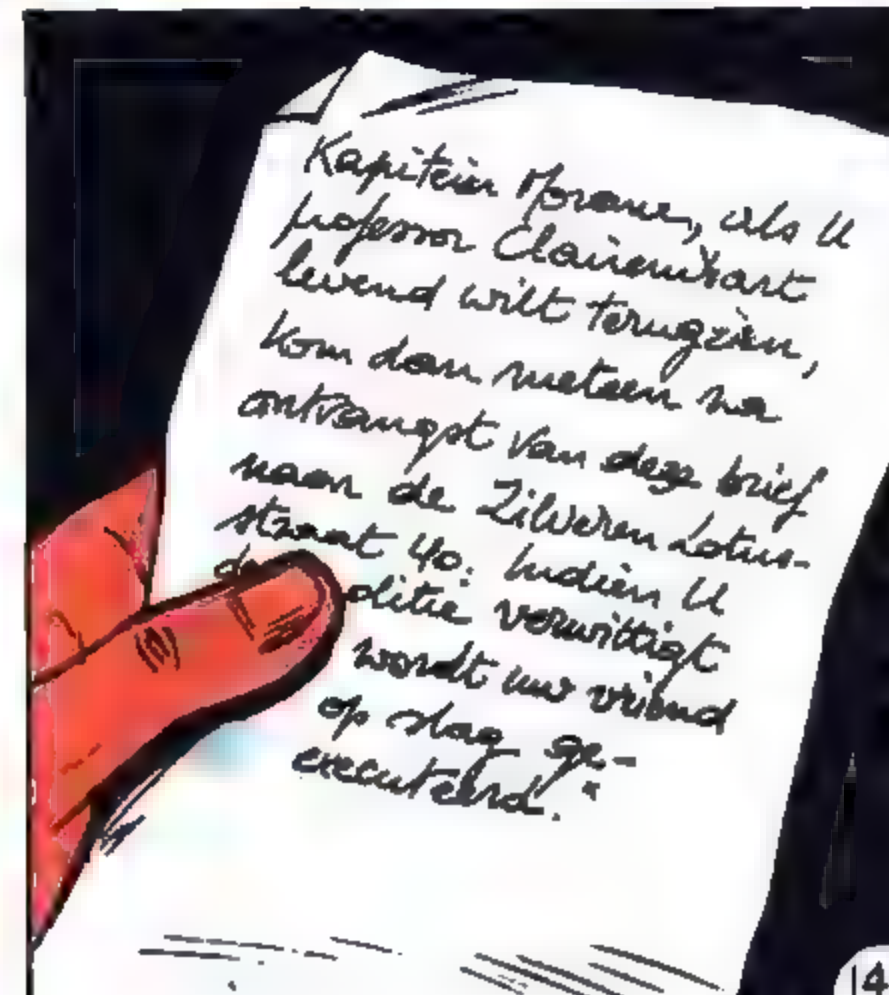 Kapitein Morane, als U
professor Clairembart
levend wilt terugzien,
kom dan meteen na
ontvangst van deze brief
naar de Zilveren Lotus-
straat 40. Indien U
d olitie verwittigt
wordt uw vriend
op slag ge-
executeerd."
14